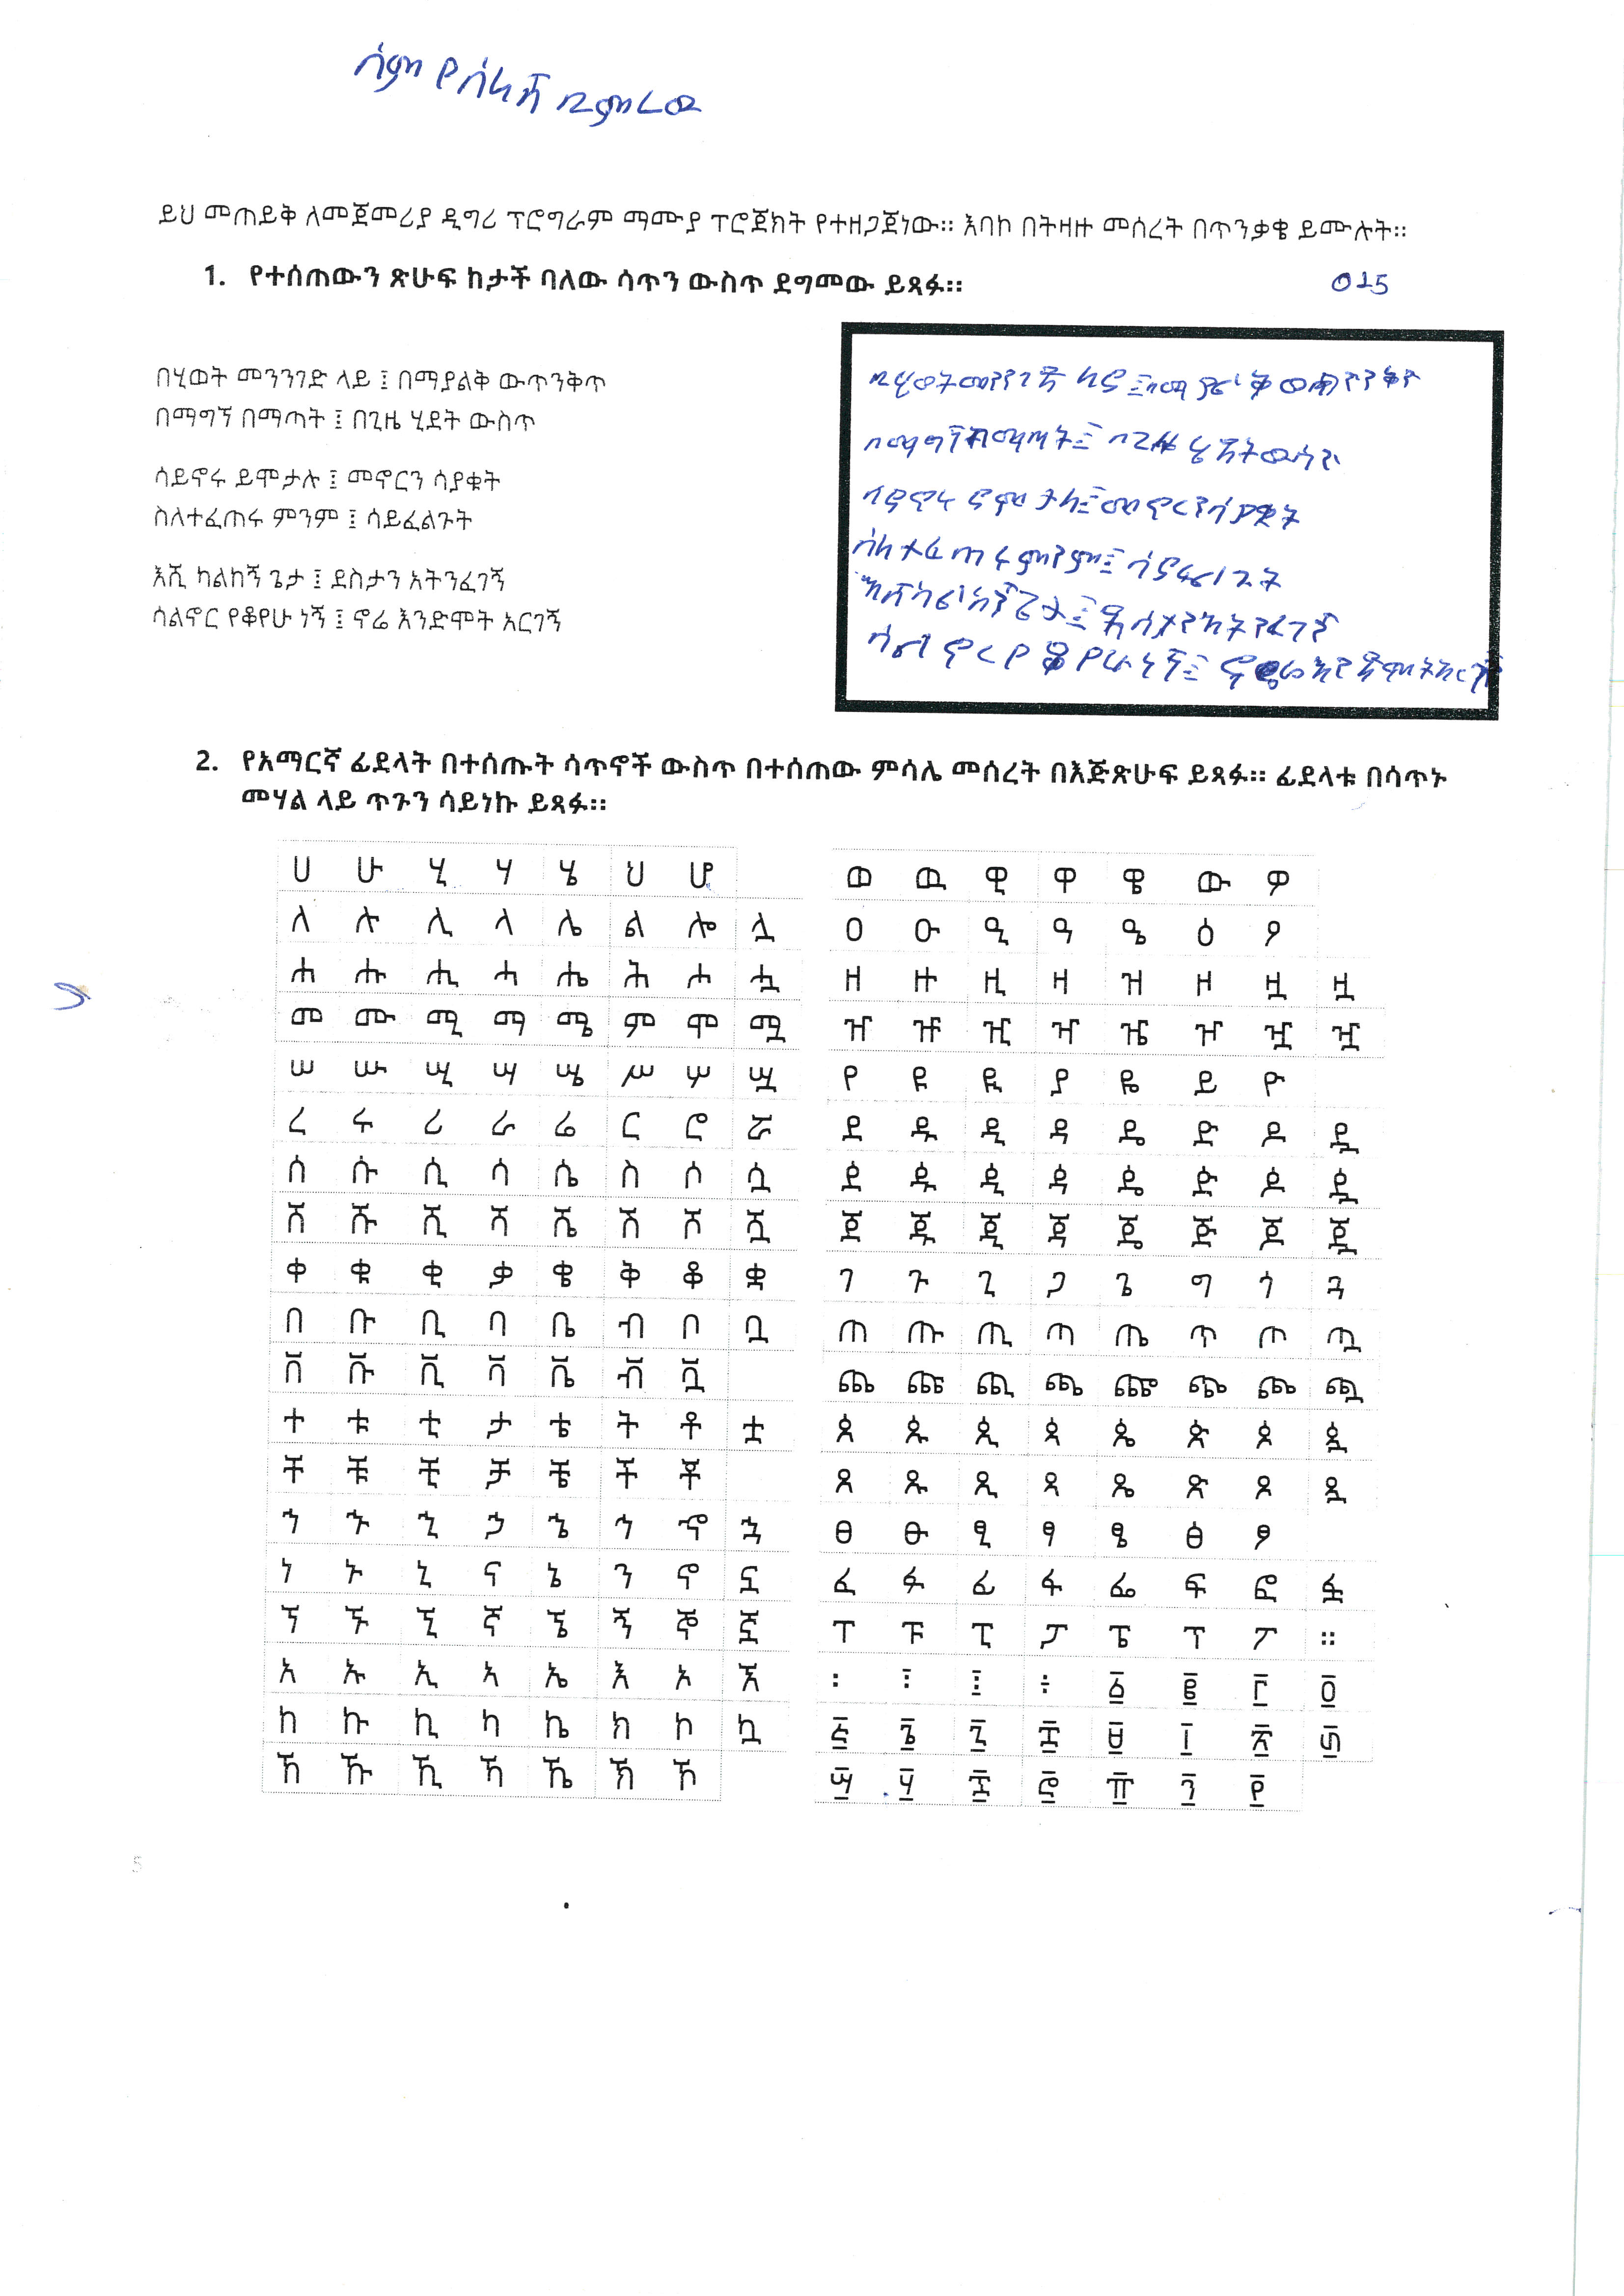 ስም የሰለሽ በምሬው
ይህ መጠይቅ ለመጀመሪያ ዲግሪ ፕሮግራም ማሙያ ፕሮጀክት የተዘጋጀነው። እባኮ በትዛዙ መሰረት በጥንቃቄ ይሙሉት።
1. የተሰጠውን ጽሁፍ ከታች ባለው ሳጥን ውስጥ ደግመው ይጻፉ።
015
በሂወት መንንገድ ላይ ፤ በማያልቅ ውጥንቅጥ
በማግኝ በማጣት ፤ በጊዜ ሂደት ውስጥ
ሳይኖሩ ይሞታሉ ፤ መኖርን ሳያቁት
ስለተፈጠሩ ምንም ፤ ሳይፈልጉት
እሺ ካልከኝ ጌታ ፤ ደስታን አትንፈገኝ
ሳልኖር የቆየሁ ነኝ ፤ ኖሬ እንድሞት አርገኝ
በሂወት መንንገድ ላይ ፤ በማያልቅ ውጥንቅጥ
በማግኝ በማጣት ፤ በጊዜ ሂደት ውስጥ
ሳይኖሩ ይሞታሉ ፤ መኖርን ሳያቁት
ስለተፈጠሩ ምንም ፤ ሳይፈልጉት
እሺ ካልከኝ ጌታ ፤ ደስታን አትንፈገኝ
ሳልኖር የቆየሁ ነኝ ፤ ኖሬ እንድሞት አርገኝ
2. የአማርኛ ፊደላት በተሰጡት ሳጥኖች ውስጥ በተሰጠው ምሳሌ መሰረት በእጅጽሁፍ ይጻፉ። ፊደላቱ በሳጥኑ
መሃል ላይ ጥጉን ሳይነኩ ይጻፉ።
ሀ ሁ ሂ ሃ ሄ ህ ሆ
ለ ሉ ሊ ላ ሌ ል ሎ ሏ
ሐ ሑ ሒ ሓ ሔ ሕ ሖ ሗ
መ ሙ ሚ ማ ሜ ም ሞ ሟ
ሠ ሡ ሢ ሣ ሤ ሥ ሦ ሧ
ረ ሩ ሪ ራ ሬ ር ሮ ሯ
ሰ ሱ ሲ ሳ ሴ ስ ሶ ሷ
ሸ ሹ ሺ ሻ ሼ ሽ ሾ ሿ
ቀ ቁ ቂ ቃ ቄ ቅ ቆ ቋ
በ ቡ ቢ ባ ቤ ብ ቦ ቧ
ቨ ቩ ቪ ቫ ቬ ቭ ቯ
ተ ቱ ቲ ታ ቴ ት ቶ ቷ
ቸ ቹ ቺ ቻ ቼ ች ቾ
ኀ ኁ ኂ ኃ ኄ ኅ ኆ ኋ
ነ ኑ ኒ ና ኔ ን ኖ ኗ
ኘ ኙ ኚ ኛ ኜ ኝ ኞ ኟ
አ ኡ ኢ ኣ ኤ እ ኦ ኧ
ከ ኩ ኪ ካ ኬ ክ ኮ ኳ
ኸ ኹ ኺ ኻ ኼ ኽ ኾ
ወ ዉ ዊ ዋ ዌ ው ዎ
ዐ ዑ ዒ ዓ ዔ ዕ ዖ
ዘ ዙ ዚ ዛ ዝ ዞ ዟ ዟ
ዠ ዡ ዢ ዣ ዤ ዦ ዧ ዧ
የ ዩ ዪ ያ ዬ ይ ዮ
ደ ዱ ዲ ዳ ዴ ድ ዶ ዷ
ዸ ዹ ዺ ዻ ዼ ዽ ዾ ዿ
ጀ ጁ ጂ ጃ ጄ ጅ ጆ ጇ
ገ ጉ ጊ ጋ ጌ ግ ጎ ጓ
ጠ ጡ ጢ ጣ ጤ ጥ ጦ ጧ
ጨ ጩ ጪ ጫ ጬ ጭ ጮ ጯ
ጰ ጱ ጲ ጳ ጴ ጵ ጶ ጷ
ጸ ጹ ጺ ጻ ጼ ጽ ጾ ጿ
ፀ ፁ ፂ ፃ ፄ ፅ ፆ
ፈ ፉ ፊ ፋ ፌ ፍ ፎ ፏ
ፐ ፑ ፒ ፓ ፔ ፕ ፖ ።
፡ ፣ ፤ ÷ ፩ ፪ ፫ ፬
፭ ፮ ፯ ፰ ፱ ፲ ፳ ፴
፵ ፶ ፷ ፸ ፹ ፺ ፻